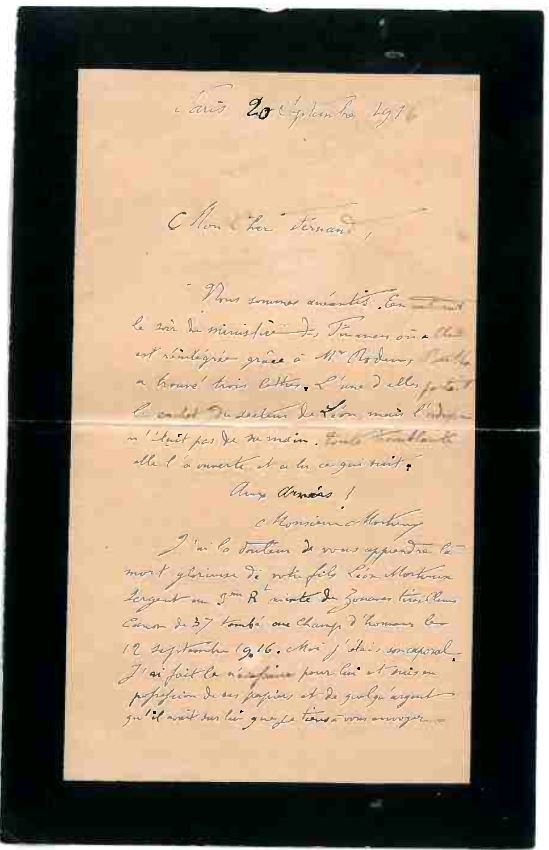 Paris 20 Septembre 1916
Mon Cher Fernand,
Nous sommes anéantis. En rentrant
le soir du ministère des Finances où elle
est réintégrée grâce à Mr Berthe
a trouvé trois lettres. L'une d'elles portait
le cachet du secteur de Léon, mais l'
n'était pas de sa main. Toute tremblante
elle l'a ouverte et a lu ce qui suit.
Aux Armées !
Monsieur
J'ai la douleur de vous apprendre la
mort glorieuse de votre fils Léon
Sergent au 3me Rt mixte de Zouaves tirailleurs
Canon de 37 tombé au Champ d'honneur le
12 septembre 1916. Moi j'étais son caporal.
J'ai fait le nécessaire pour lui et suis en
possession de ses papiers et de quelqu'argent
qu'il avait sur lui que je tiens à vous envoyer